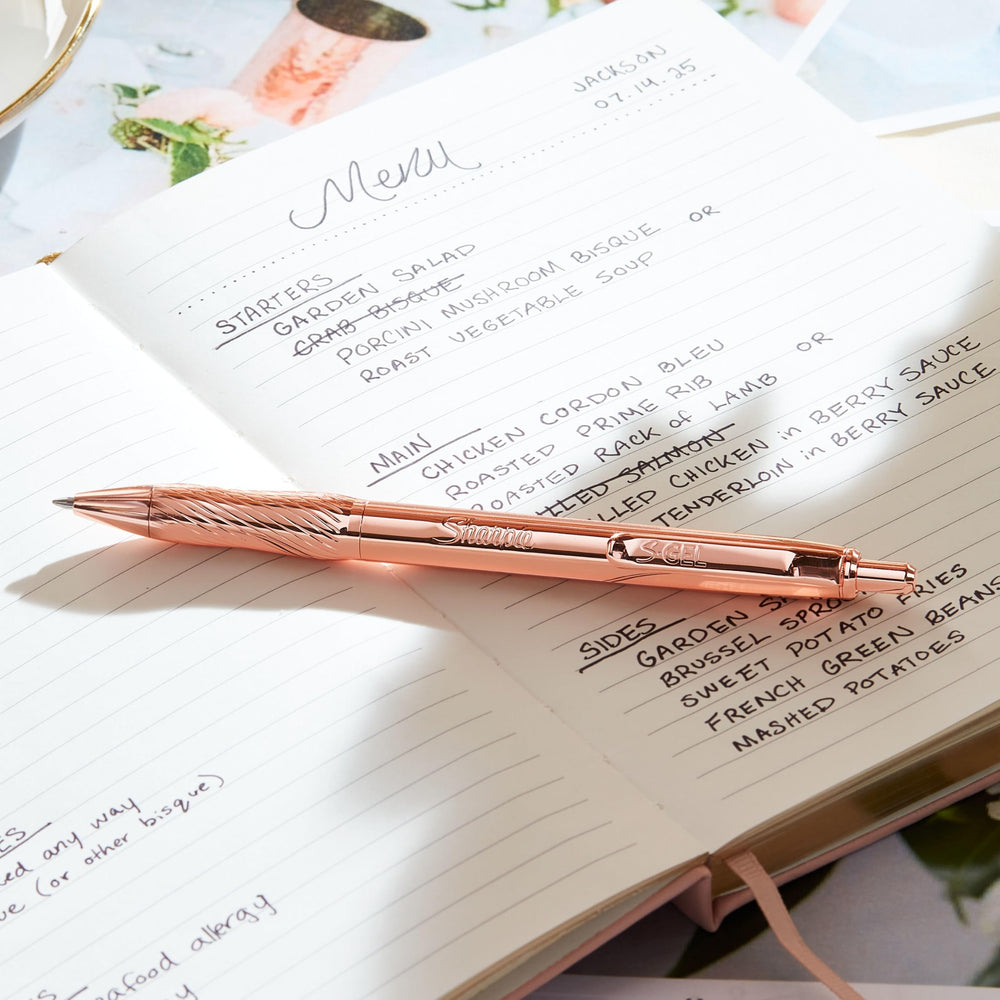 JACKSON
07.14.25
Menu
STARTERS
GARDEN SALAD
CRAB BISQUE
PORCINI MUSHROOM BISQUE OR
ROAST VEGETABLE SOUP
MAIN
CHICKEN CORDON BLEU OR
ROASTED PRIME RIB
ROASTED RACK of LAMB
SALMON
CHICKEN in BERRY SAUCE
TENDERLOIN in BERRY SAUCE
Sharpie
S·GEL
SIDES
GARDEN
BRUSSEL
SWEET POTATO FRIES
FRENCH GREEN BEANS
MASHED POTATOES
any way
(or other bisque)
allergy